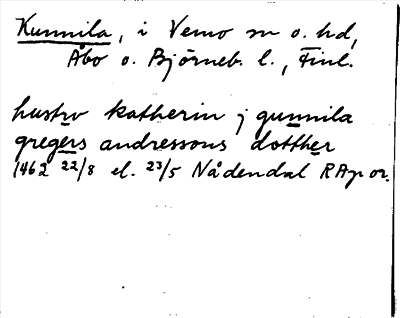 Kunnila, i Vemo sn o. hd,
Åbo o. Björneb. l., Finl.
hustrv katherin j gunnila
gregers andressons dotther
1462 22/8 el. 23/5 Nådendal RAp or.